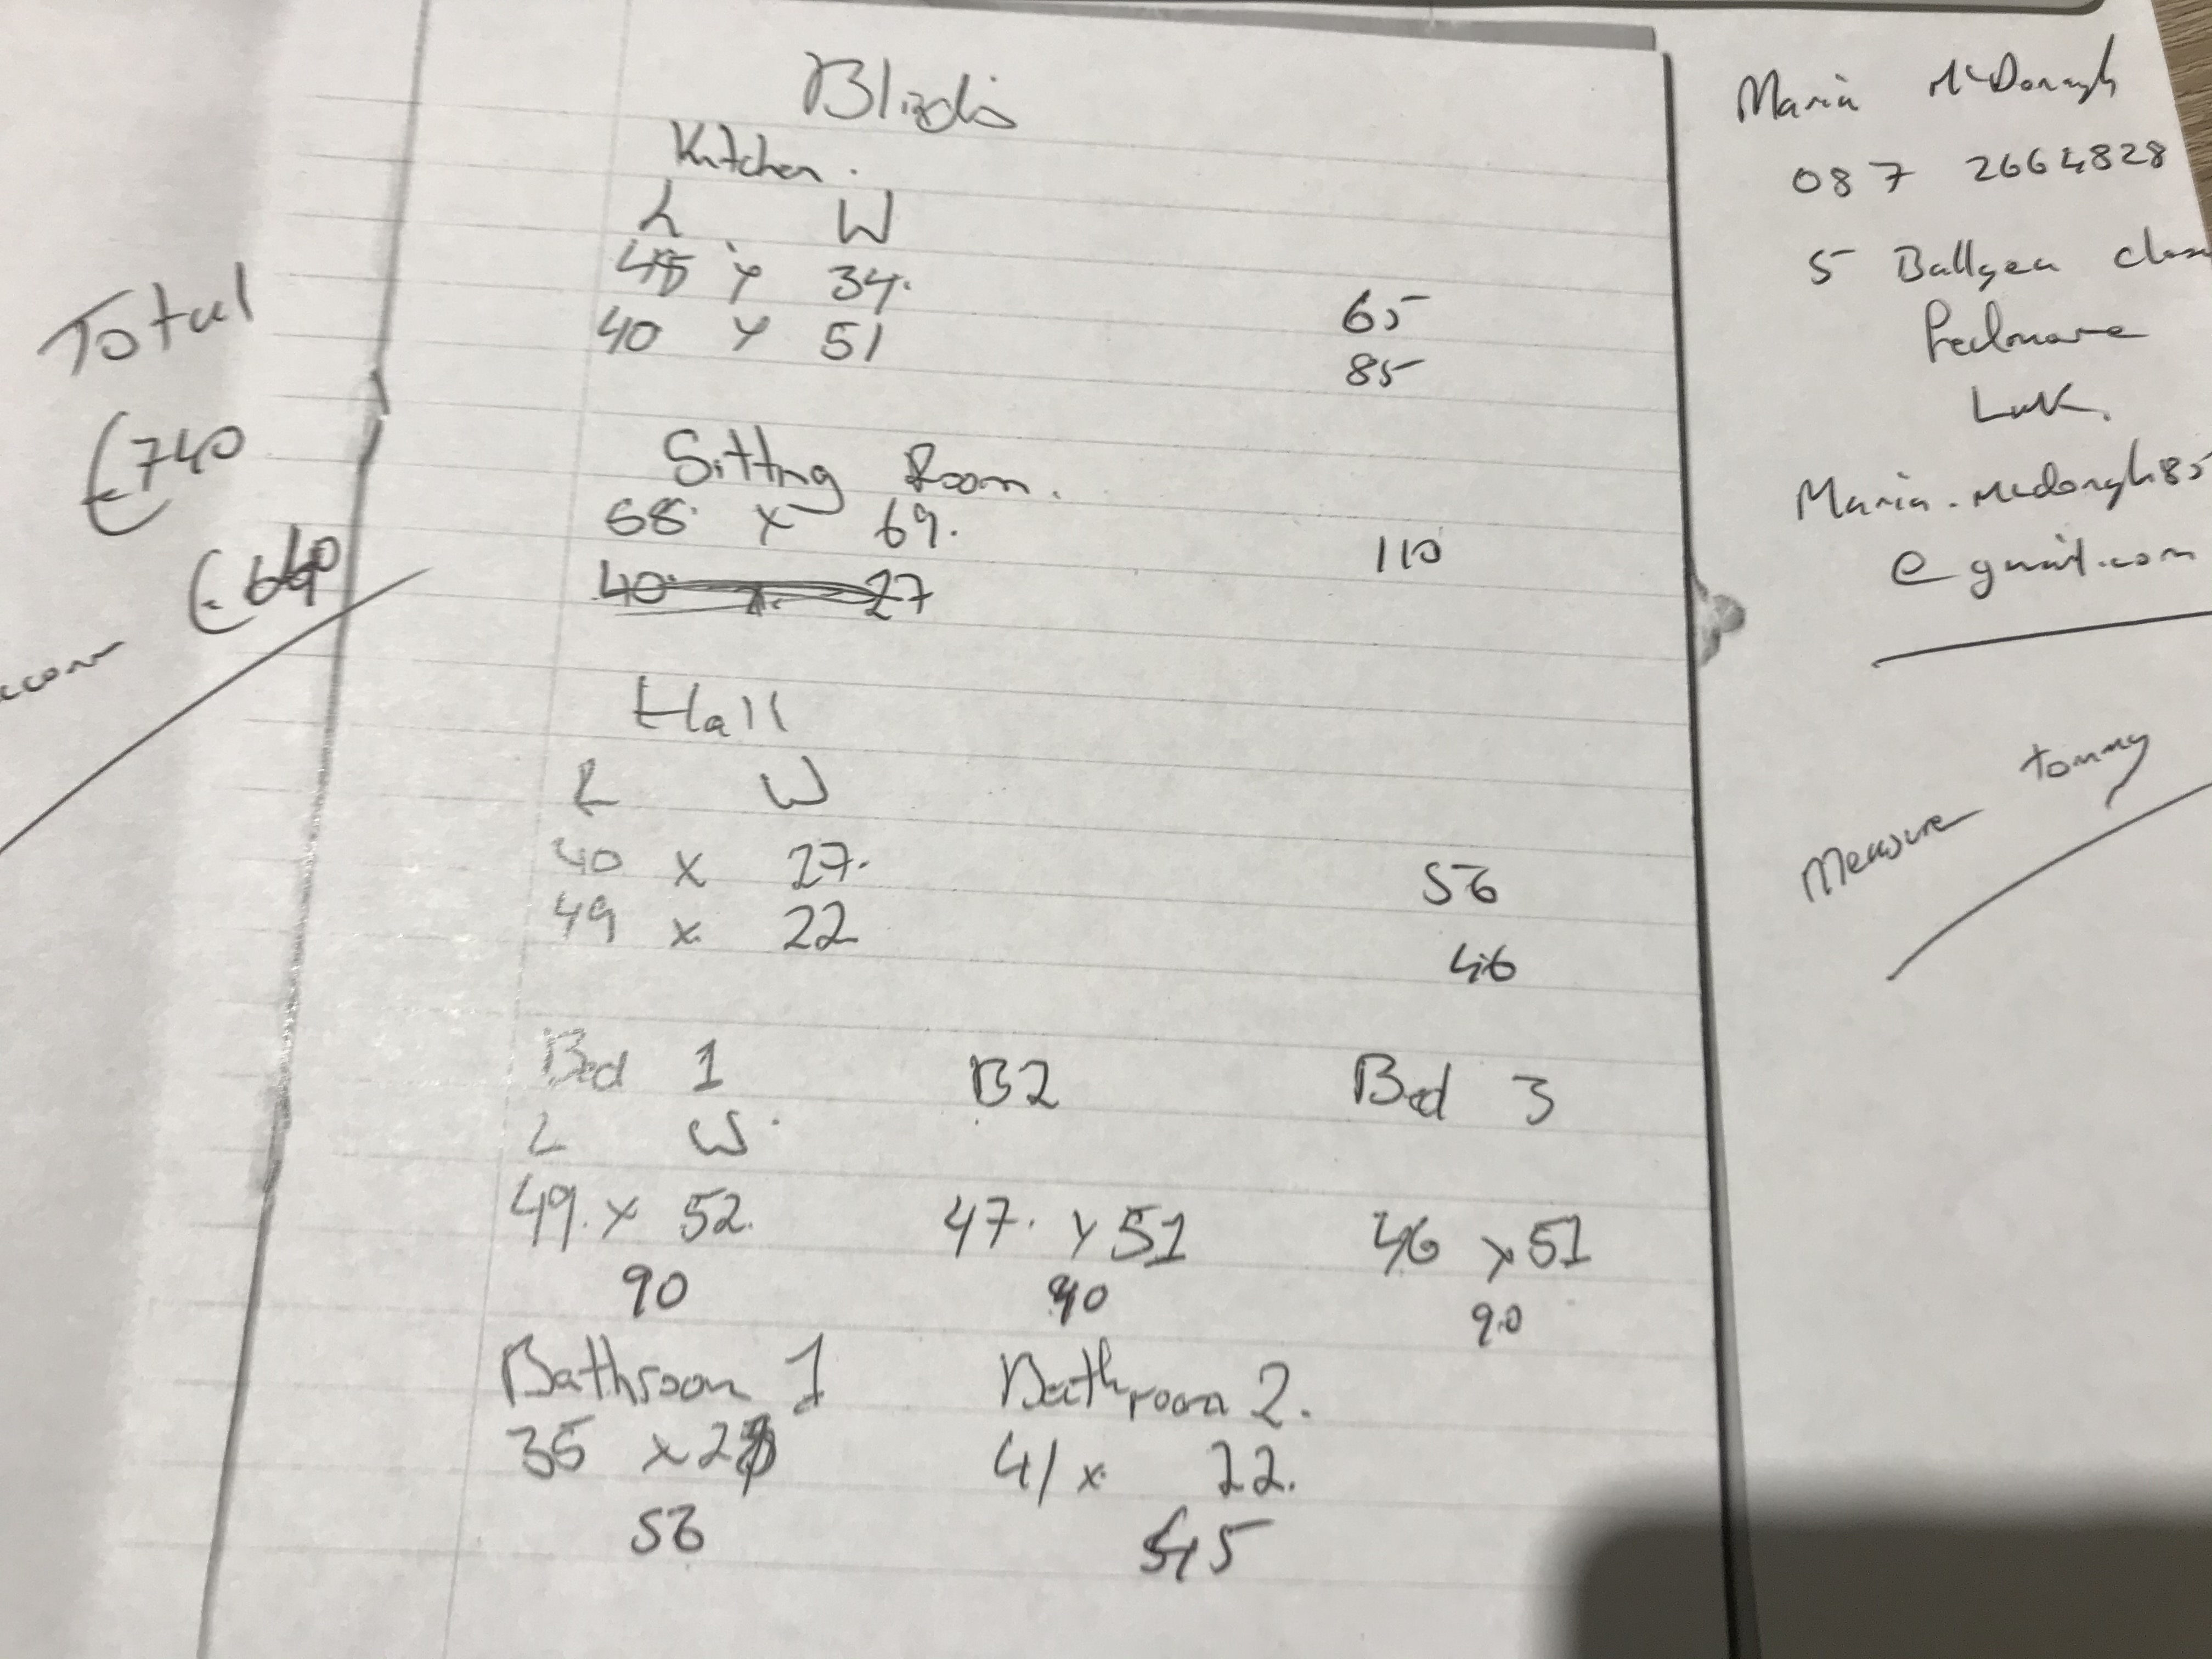 Blinds
Kitchen.
L W
45 x 34. 65
40 x 51 85
Sitting Room.
68 x 69. 110
40 x 27
Hall
L W
40 x 27. 56
49 x 22 46
Bed 1 B2 Bed 3
L W
49. x 52. 47. x 51 46 x 51
90 90 90
Bathroom 1 Bathroom 2.
35 x 2 41 x 22.
56 45
Total
€740
€640
Maria McDonagh
087 2664828
5 Close
Maria.Mcdonagh85
@gmail.com
Measure tommy